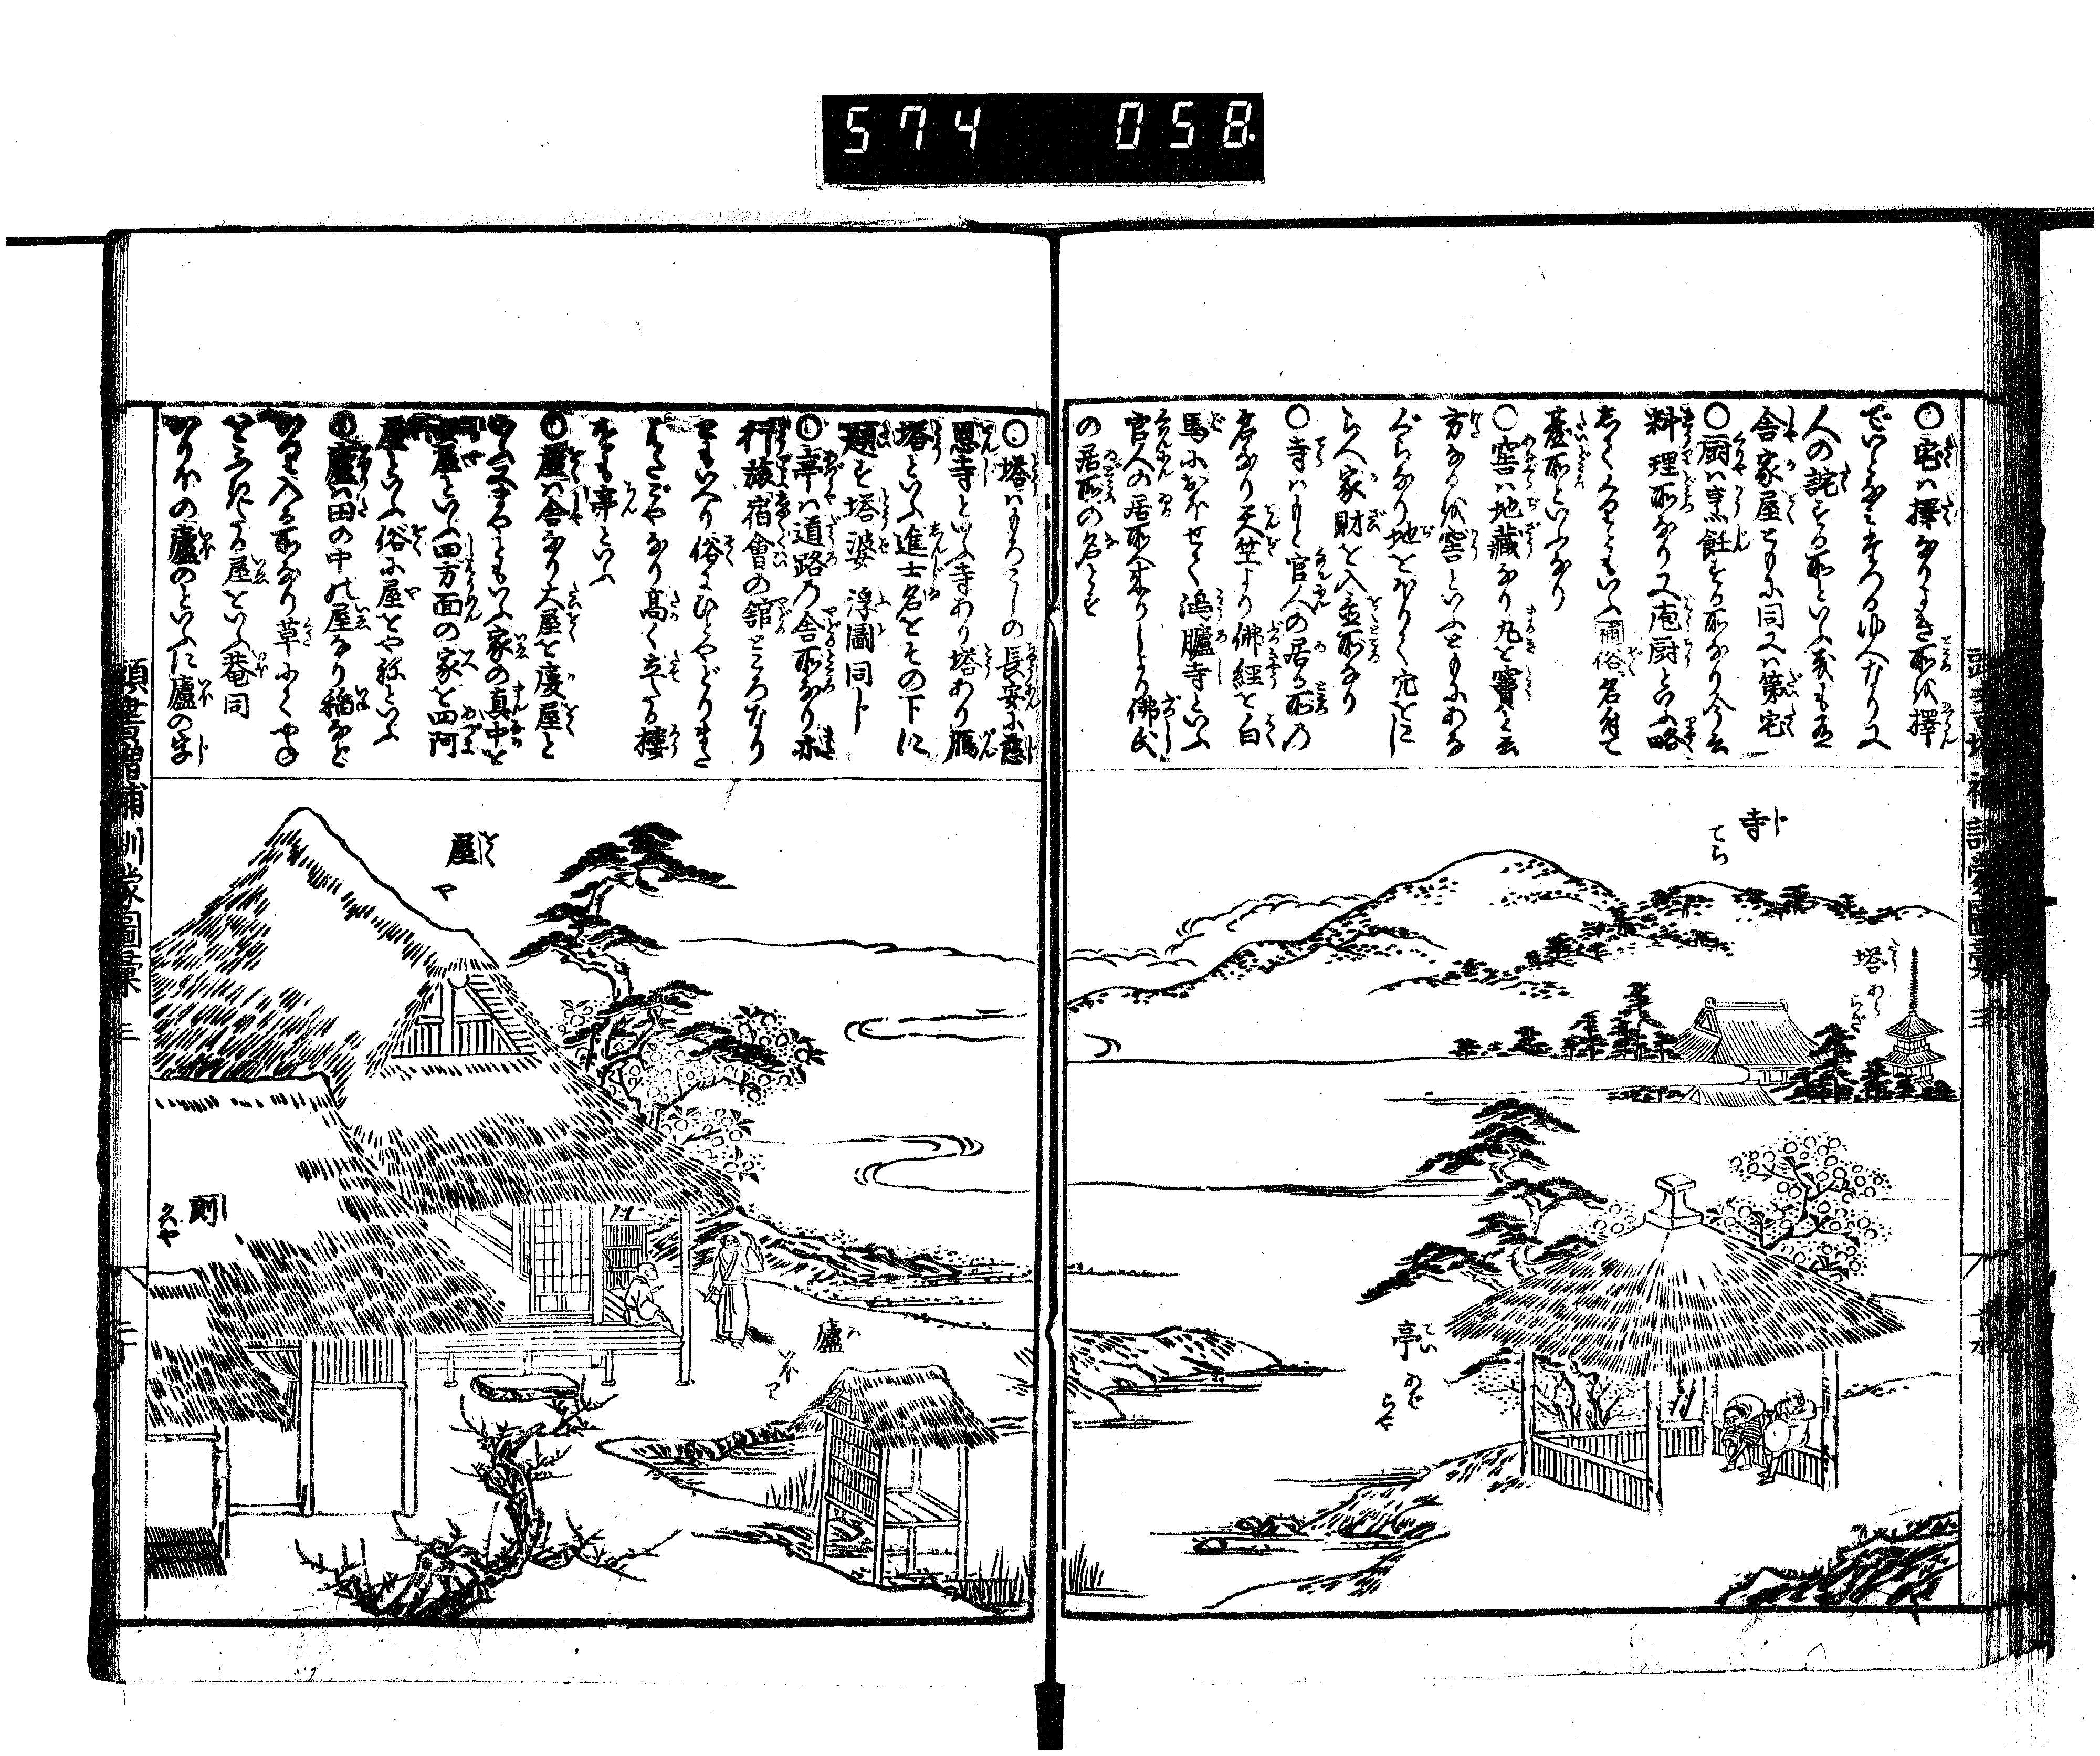 574 058
○宅ハ擇なりよき所を擇
でいとなミすへるゆへなり又
人の詫する所といふ義も有
舎家屋ともに同又ハ第宅
○厨ハ烹飪する所なり今云
料理所なり又庖厨といふ略
してくりともいふ補俗名付て
臺所といふなり
○窖ハ地藏なり丸を竇と云
方なるを窖といふともにあな
ぐらなり地をほりて穴をこし
らへ家財を入置所なり
○寺ハもと官人の居る所の
名なり天竺より佛經を白
馬におほせて鴻臚寺といふ
官人の居所へ来りしより佛氏
の居所の名とす
寺 てら
塔 あらゝぎ
亭 てい
頭書増補訓蒙圖彙 三
○塔ハもろこしの長安に慈
恩寺といふ寺あり塔あり鴈
塔といふ進士名をその下に
題す塔婆 浮圖同し
○亭ハ道路乃舎所なり亦
行旅宿會の舘ところなり
ともいへり俗にひとやどりまた
はたごやなり高く立たる樓
をも亭といふ
○屋ハ舎なり大屋を廈屋と
いふ又まやともいふ家の真中を
屋といふ四方面の家を四阿
屋といふ俗に屋をや祢といふ
○廬ハ田の中の屋なり稲など
いれ入る所なり草にてやね
をふきたる屋といふ菴同
かりほの廬のといふに廬の字
屋 や
廬 いほり
頭書増補訓蒙圖彙 三